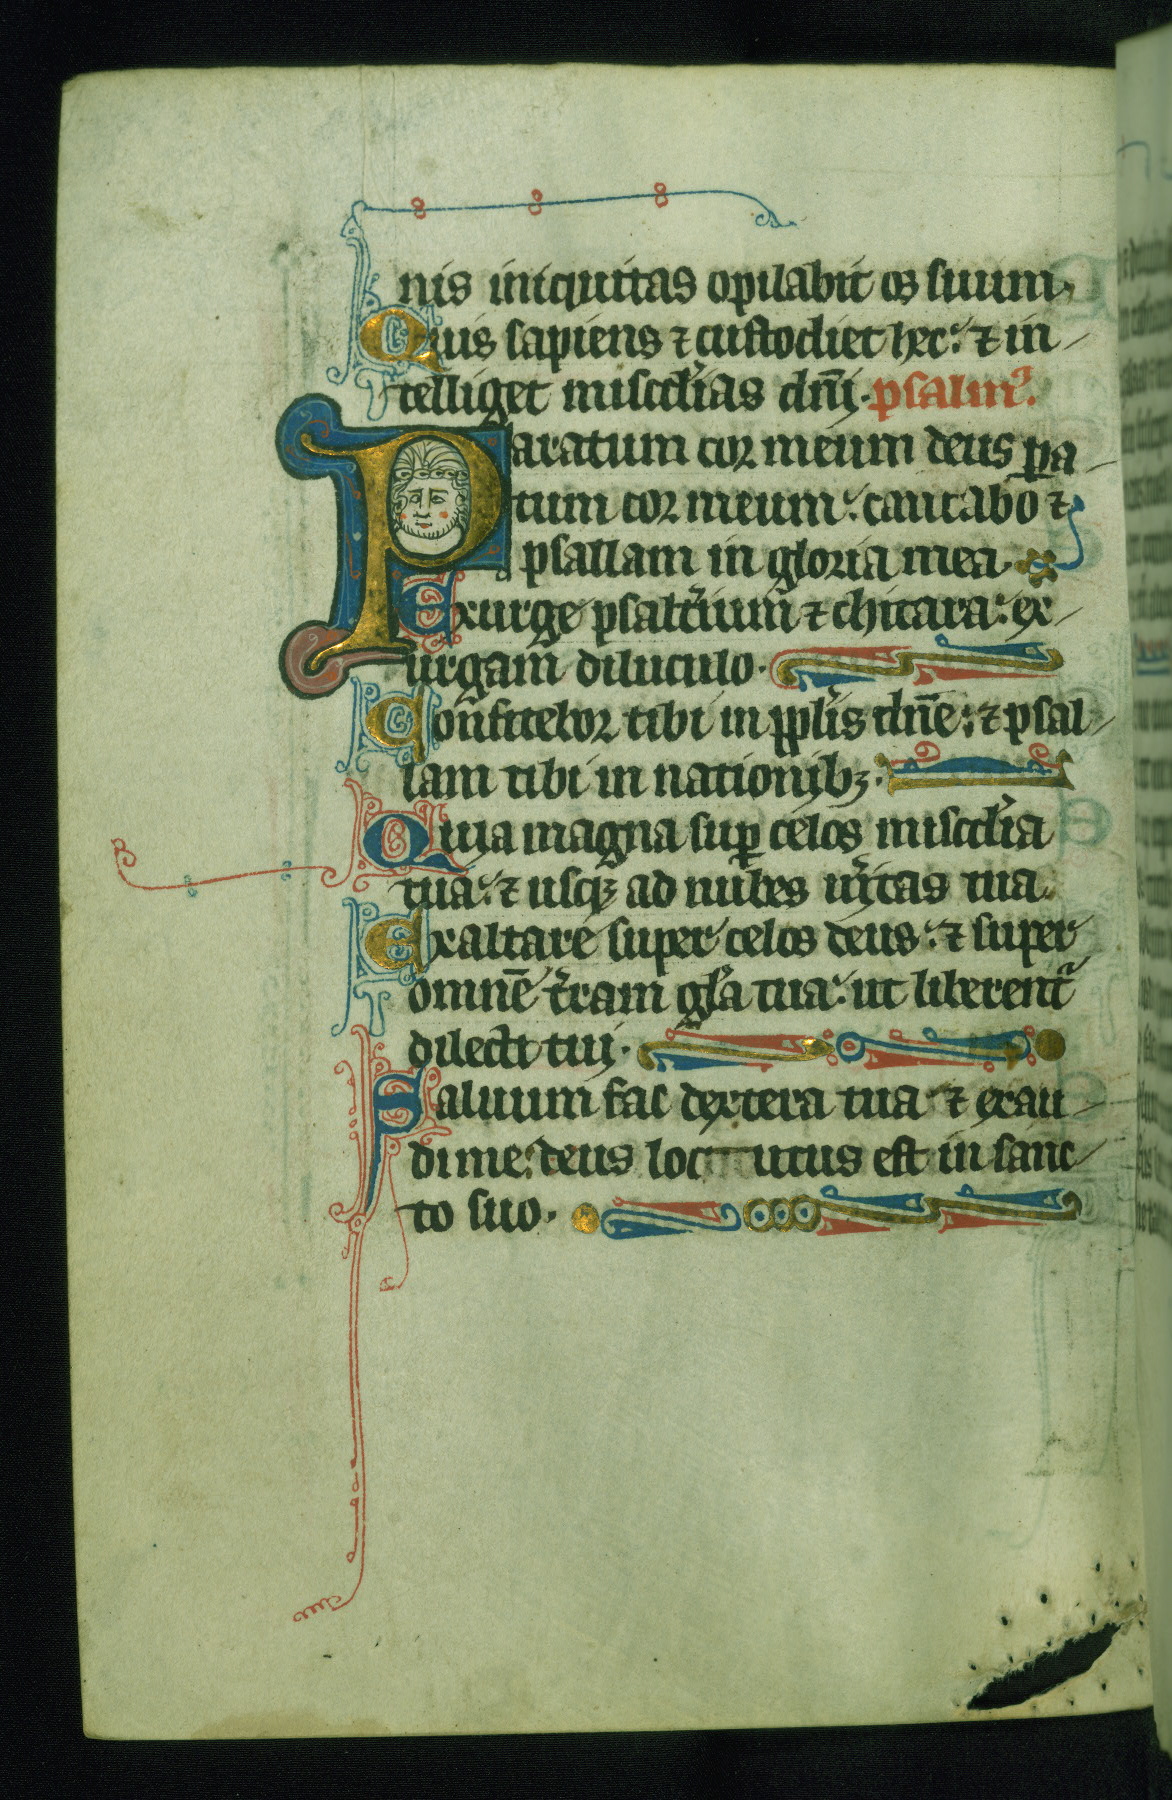 nis iniquitas opilabit os suum.
Quis sapiens ⁊ custodiet hec: ⁊ in
telliget misc̄dias dn̄i. psalm᾿.
Paratum cor meum deus ꝑa
tum cor meum: cantabo ⁊
psallam in gloria mea.
Exurge psalt̓ium ⁊ chitara: ex
urgam diluculo.
Confitebor tibi in ppl̓is dn̄e: ⁊ psal
lam tibi in nationibꝫ.
Quia magna suꝑ celos misc̄dia
tua: ⁊ usqꝫ ad nubes u̓itas tua.
Exaltare super celos deus: ⁊ super
omnē t̓ram gl̓a tua: ut liberent᾿
dilecti tui.
Saluum fac dextera tua ⁊ exau
di me: deus locutus est in sanc
to suo.